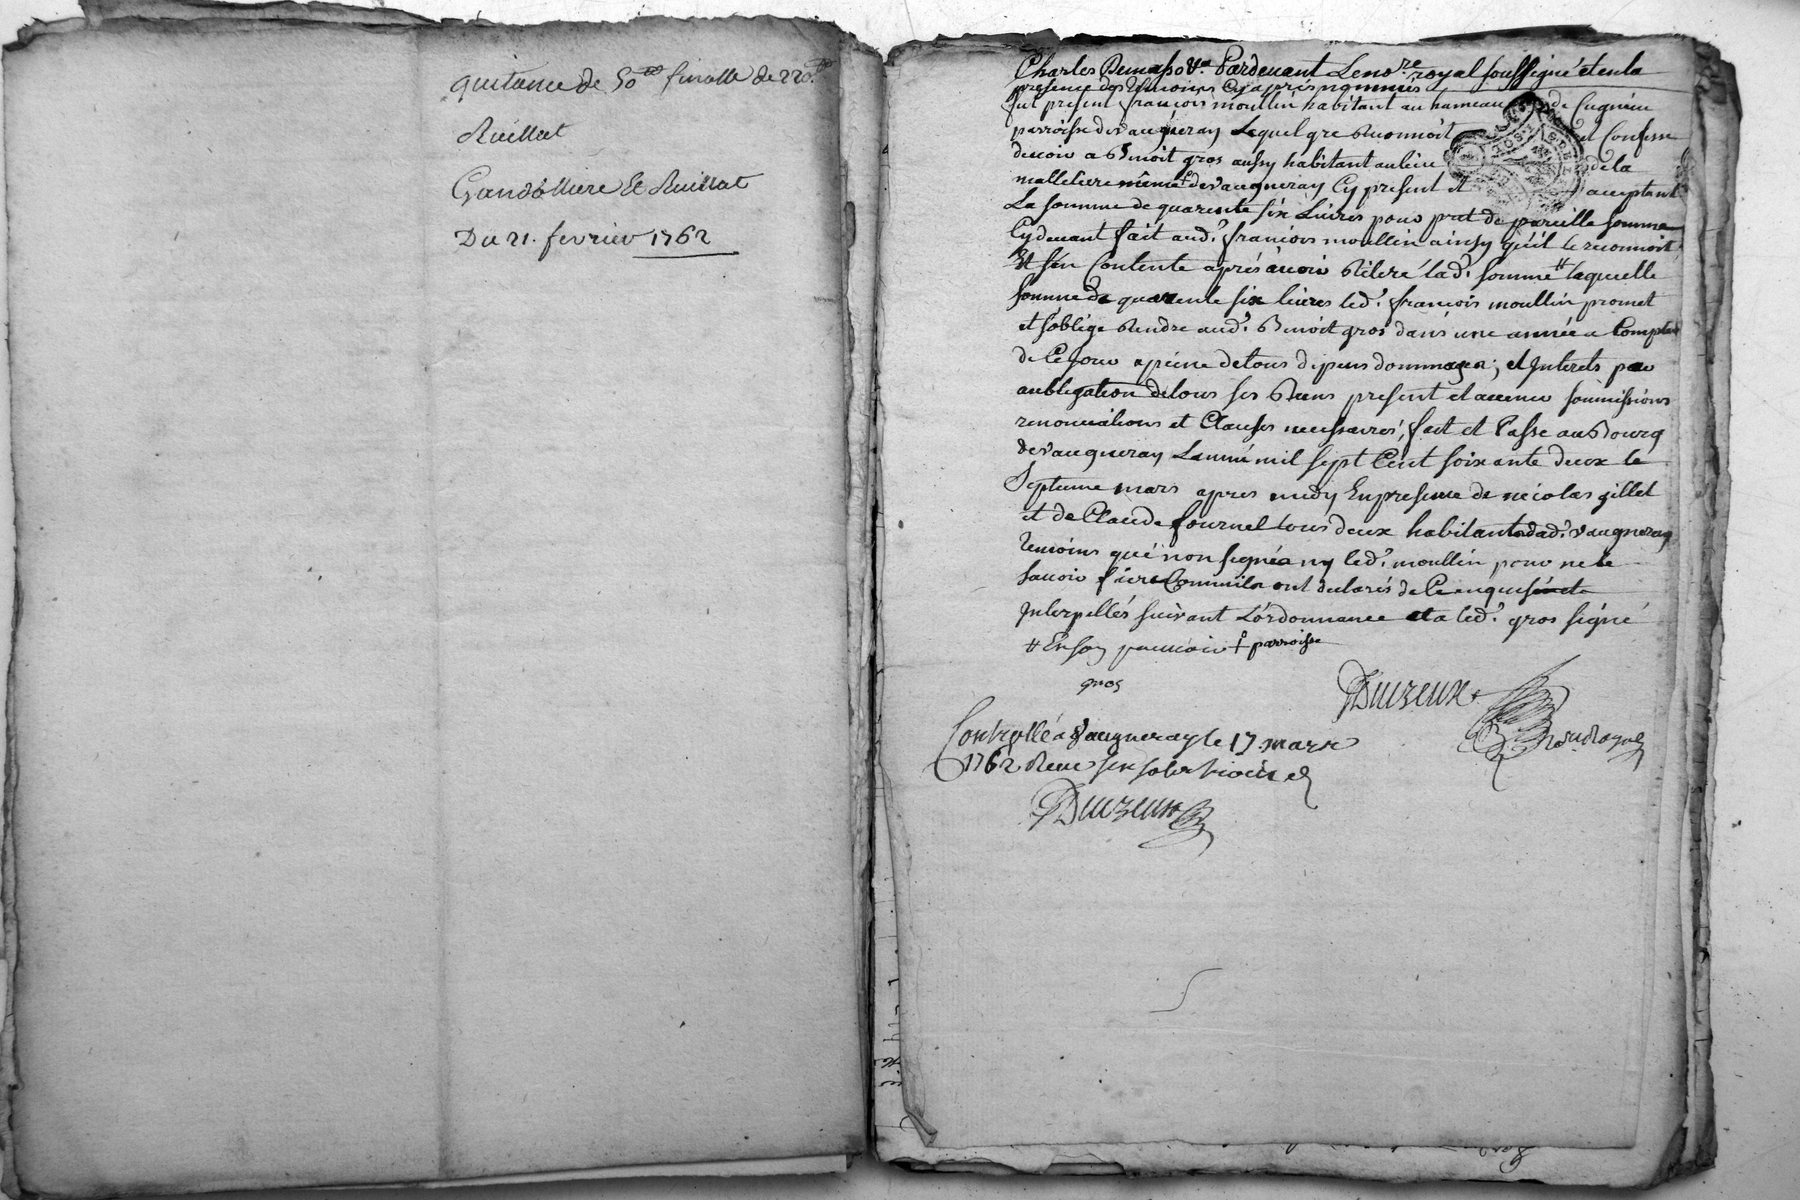 quitance de 50tt finalle de 220tt
Ruillat
Gandolliere Et Ruillat
Du 21. fevrier 1762
Charles Pardevant Le nore royal soussigné et en la
presence des temoins Cy apres nommés
fut present françois moullin habitant au hameau de
parroisse de vaugneray Lequel gre Reconnoit et Confesse
devoir a Benoit gros aussy habitant au lieu de la
malletiere même † de vaugneray Cy present et acceptant
La somme de quarente six Livres pour pret de pareille somme
Cy devant fait aud. françois moullin ainsy quil le reconnoit
Et sen Contente aprés avoir Retiré lad. somme # laquelle
somme de quarente six livres led. françois moullin promet
et soblige Rendre aud. Benoit gros dans une année a Compter
de Ce jour a peine de tous depens dommages, et Interets par
aubligation de tous ses Biens present et avenir soumissions
renonciations et Clauses necessaires, fait et Passé au Bourg
de vaugneray Lanné mil sept Cent soixante deux le
Septieme mars apres midy En presence de nicolas gillet
et de Claude fournel tous deux habitants dud. vaugneray
temoins qui non signés ny led. moullin pour ne le
savoir faire Comme ils ont declarés de Ce enquis et
Interpellés suivant Lordonnance et a led. gros signé
# En son pouvoir † parroisse
gros
Duizeux
Controllé a Vaugneray le 17 mars
1762 Receu six sols
Duizeux